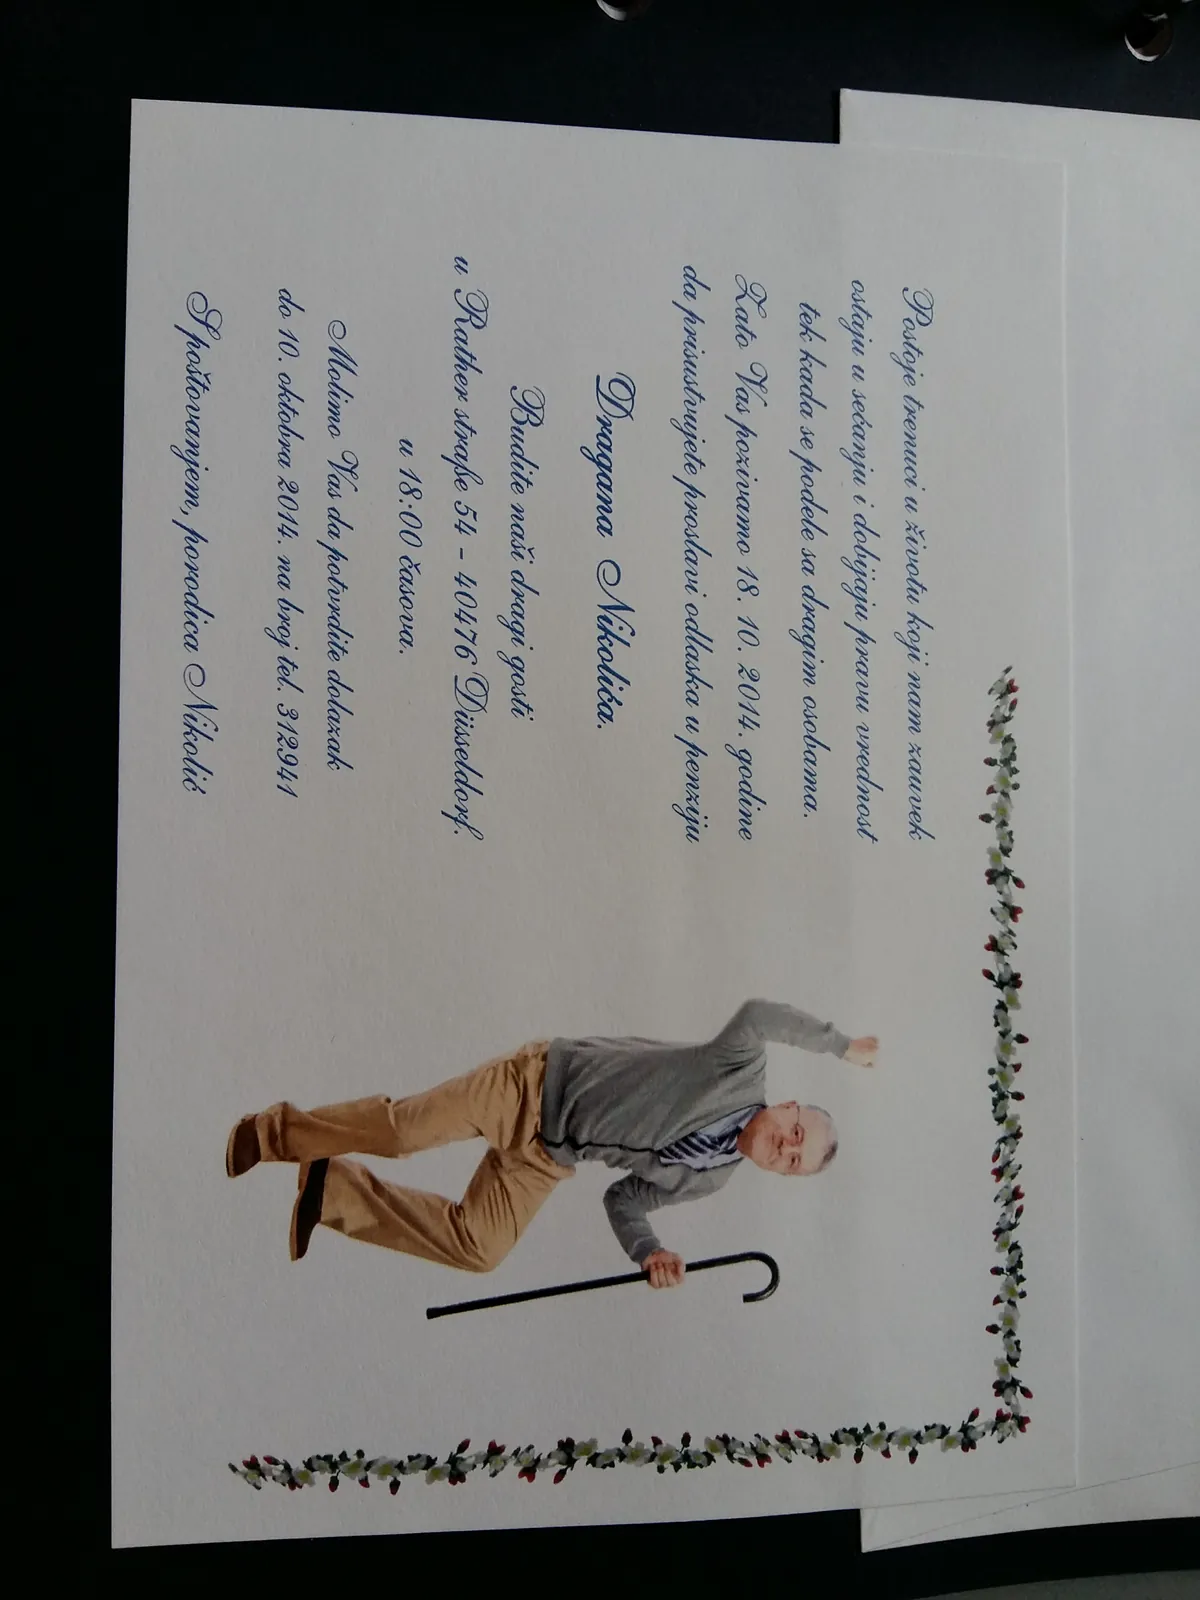 Postoje trenuci u životu koji nam zauvek
ostaju u sećanju i dobijaju pravu vrednost
tek kada se podele sa dragim osobama.
Zato Vas pozivamo 18. 10. 2014. godine
da prisustvujete proslavi odlaska u penziju
Dragana Nikolića.
Budite naši dragi gosti
u Rather straße 54 - 40476 Düsseldorf.
u 18:00 časova.
Molimo Vas da potvrdite dolazak
do 10. oktobra 2014. na broj tel. 312941
S poštovanjem, porodica Nikolić